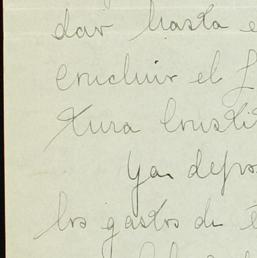 dar hasta e
concluir el
tura Consti
Ya depos
los gastos de